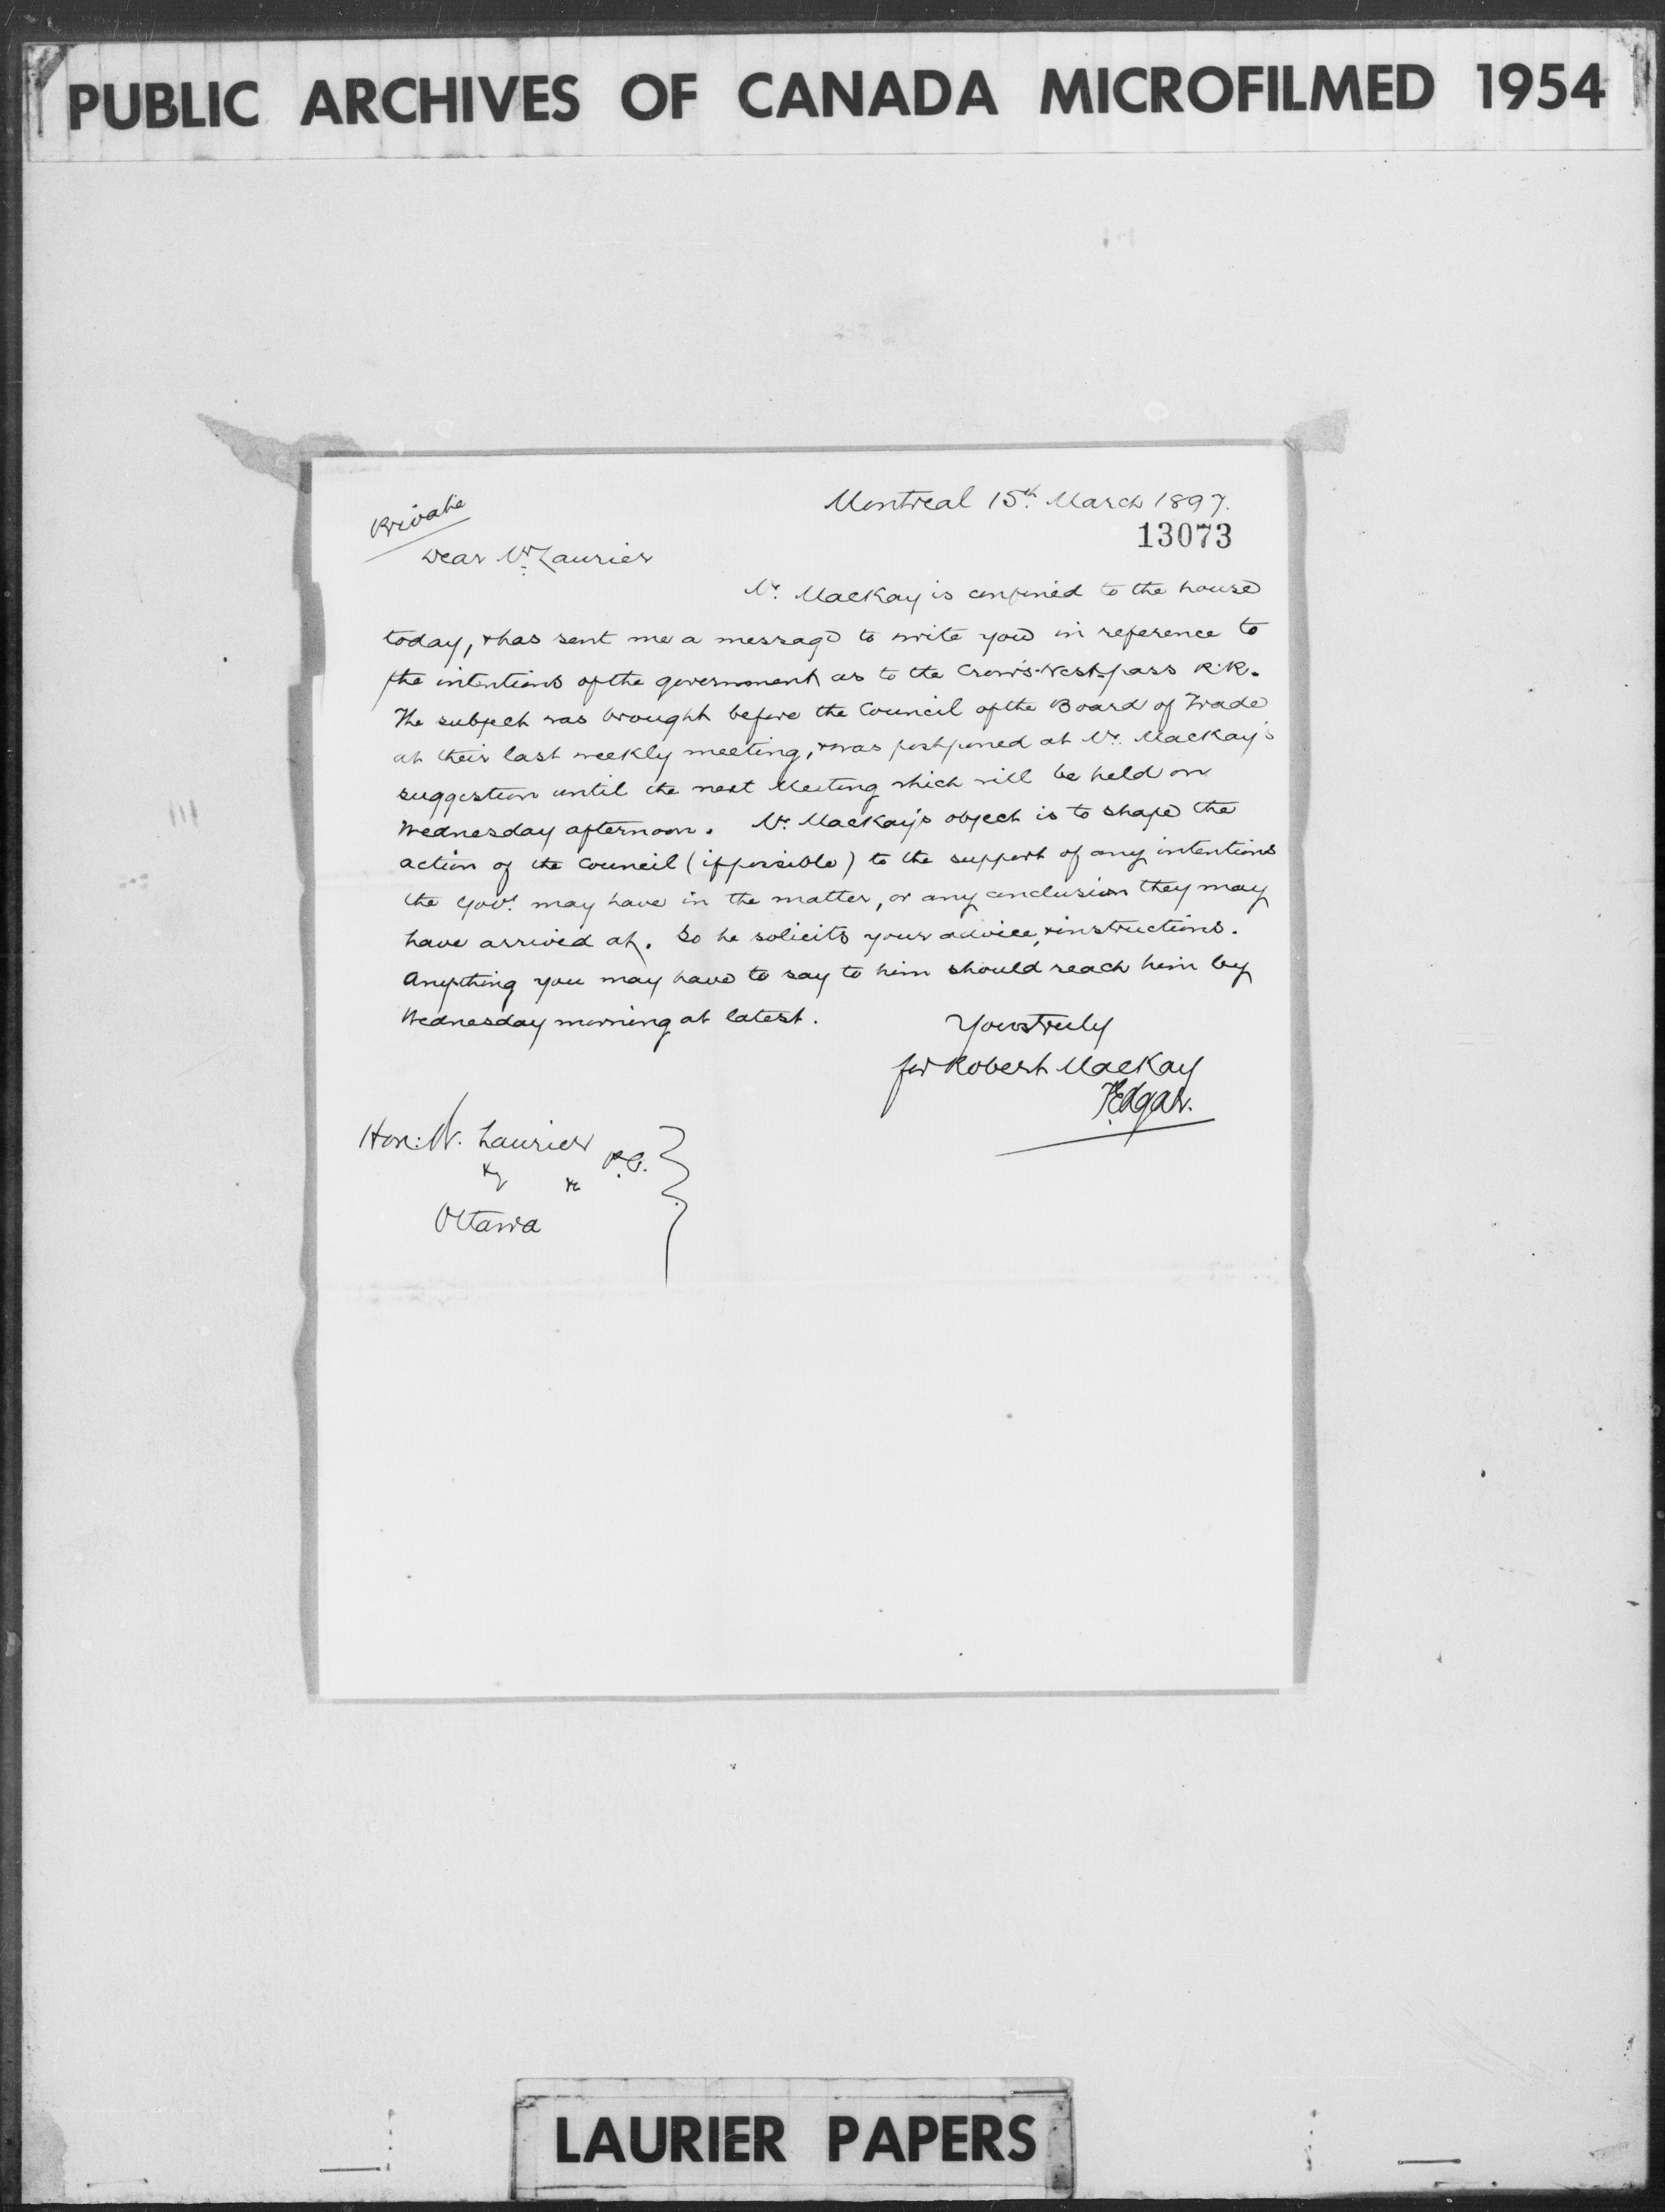 PUBLIC ARCHIVES OF CANADA MICROFILMED 1954
Private
Montreal 15th March 1897.
13073
Dear Mr Laurier
Mr. Mackay is confined to the house
today, & has sent me a message to write you in reference to
the intentions of the government as to the Crow's-Nest-pass R.R.
The subject was brought before the Council of the Board of Trade
at their last weekly meeting, & was postponed at Mr. Mackay's
suggestion until the next Meeting which will be held on
Wednesday afternoon. Mr. Mackay's object is to shape the
action of the Council (if possible) to the support of any intentions
the Govt. may have in the matter, or any conclusion they may
have arrived at. So he solicits your advice, & instructions.
Anything you may have to say to him should reach him by
Wednesday morning at latest.
Yours truly
for Robert Mackay
Edgar.
Hon: W. Laurier
&c &c P.C.
Ottawa
LAURIER PAPERS